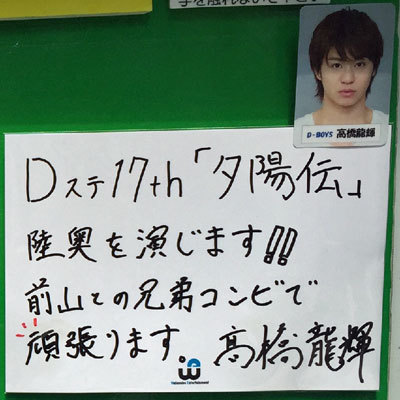 D-BOYS 高橋龍輝
Dステ17th「夕陽伝」
陸奥を演じます!!
前山との兄弟コンビで
頑張ります 高橋龍輝
Watanabe Entertainment